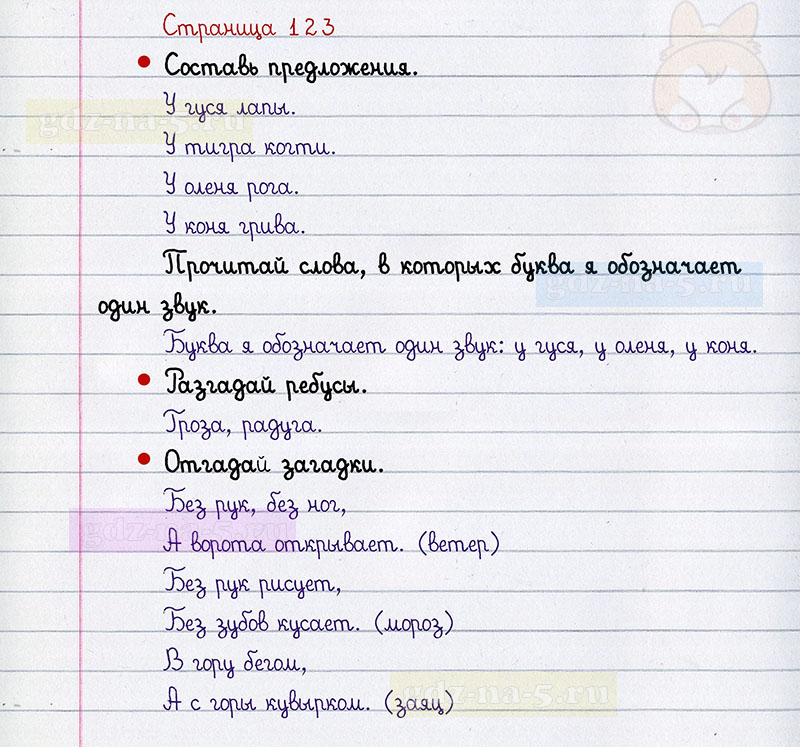 Страница 123
• Составь предложения.
У гуся лапы.
gdz-na-5.ru
У тигра когти.
У оленя рога.
У коня грива.
Прочитай слова, в которых буква я обозначает
gdz-na-5.ru
один звук.
Буква я обозначает один звук: у гуся, у оленя, у коня.
• Разгадай ребусы.
Гроза, радуга.
• Отгадай загадки.
Без рук, без ног,
gdz-na-5.ru
А ворота открывает. (ветер)
Без рук рисует,
Без зубов кусает. (мороз)
В гору бегом,
gdz-na-5.ru
А с горы кувырком. (заяц)